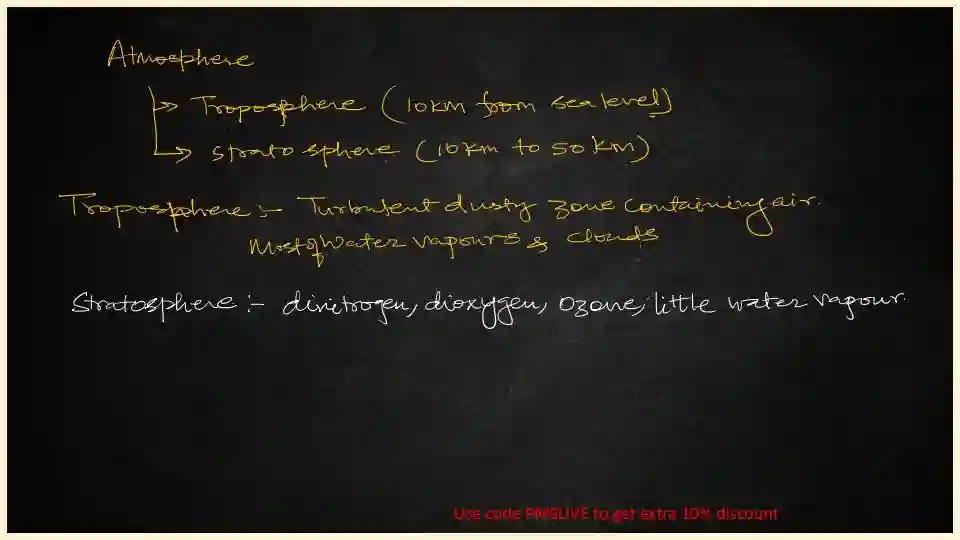 Atmosphere
Troposphere (10km from sea level)
Stratosphere (10km to 50km)
Troposphere :- Turbulent dusty zone containing air.
Most of Water vapours & clouds
Stratosphere :- dinitrogen, dioxygen, Ozone, little water vapour.
Use code PMSLIVE to get extra 10% discount